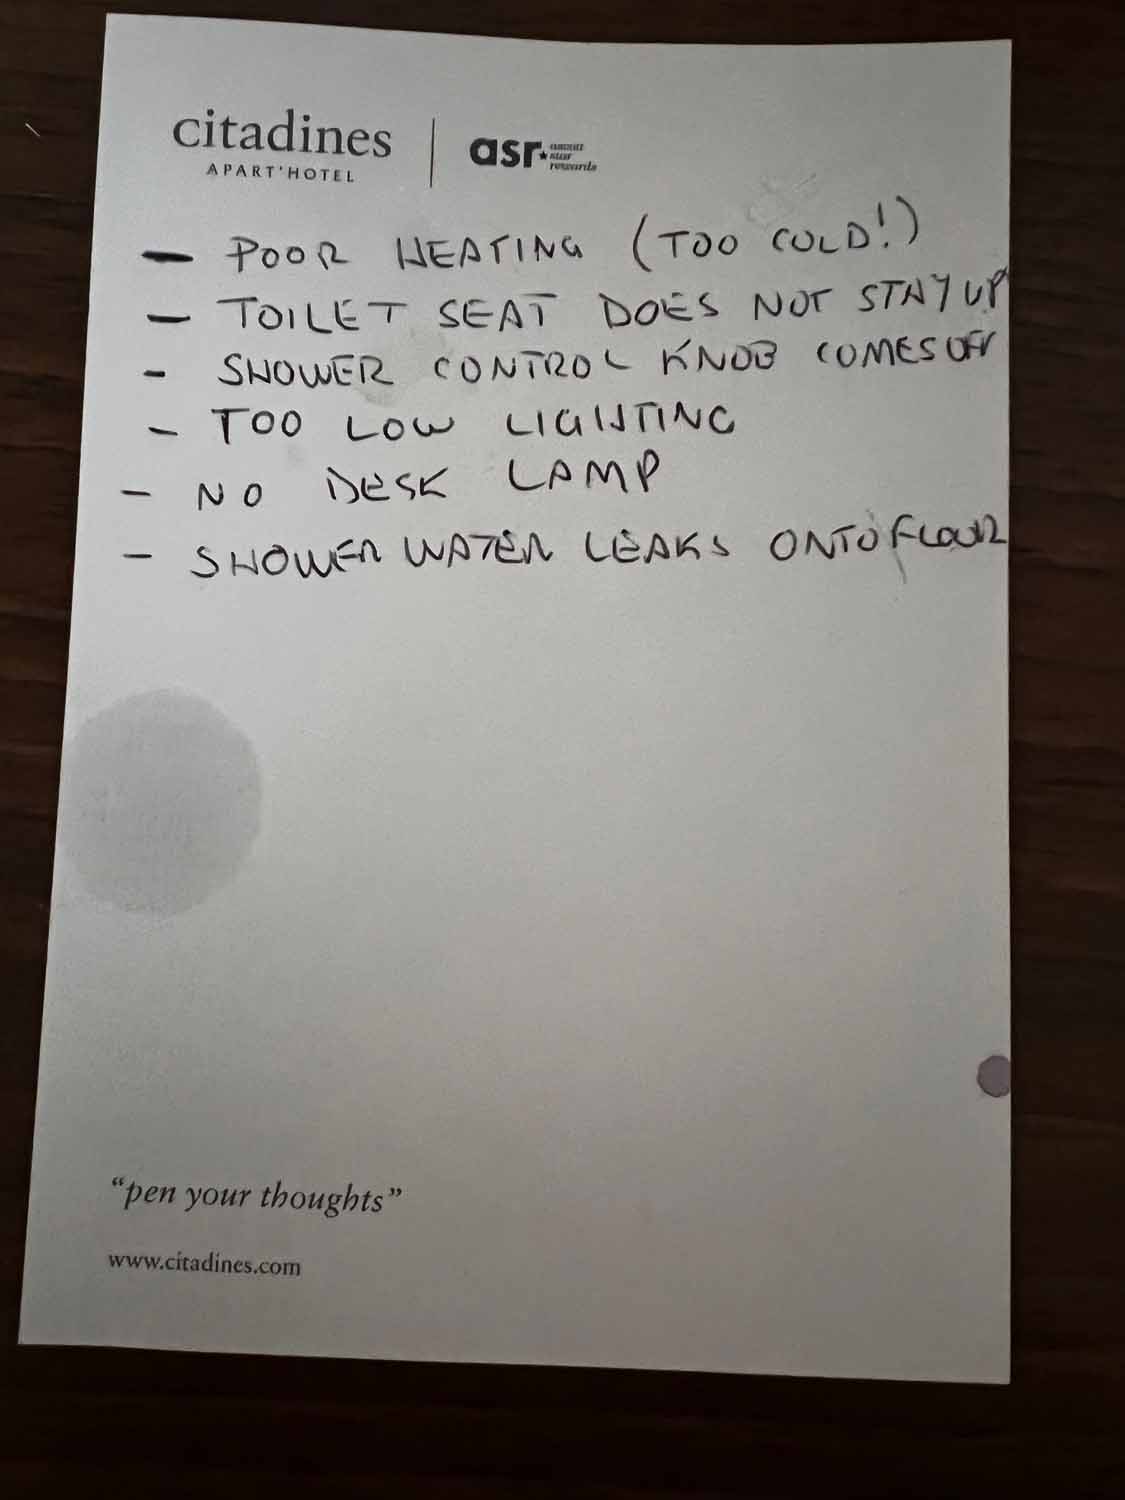 citadines
APART'HOTEL
asr ascott star rewards
– POOR HEATING (TOO COLD!)
– TOILET SEAT DOES NOT STAY UP
– SHOWER CONTROL KNOB COMES OFF
– TOO LOW LIGHTING
– NO DESK LAMP
– SHOWER WATER LEAKS ONTO FLOOR
“pen your thoughts”
www.citadines.com